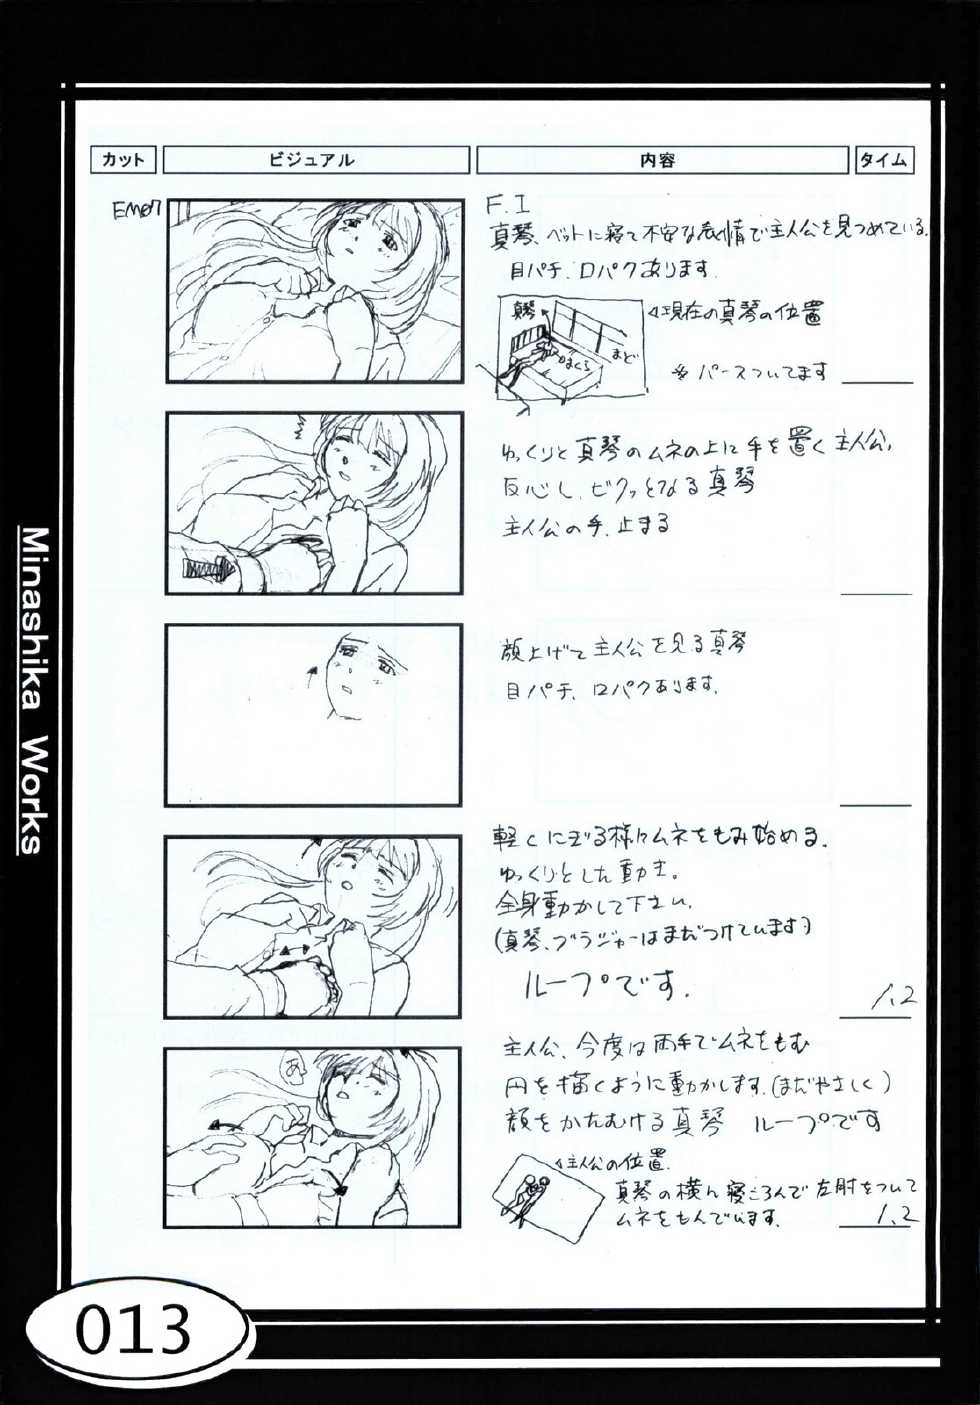 カット ビジュアル 内容 タイム
EM07
F.I
真琴、ベットに寝て不安な表情で主人公を見つめている。
目パチ、口パクあります。
真琴
◁現在の真琴の位置
まど
まくら
※ パースついてます
ゆっくりと真琴のムネの上に手を置く主人公。
反応し、ビクッとなる真琴
主人公の手、止まる
顔上げて主人公を見る真琴
目パチ、口パクあります。
軽くにぎる様にムネをもみ始める。
ゆっくりとした動き。
全身動かして下さい。
(真琴、ブラジャーはまだつけています)
ループです。
1.2
あ
主人公、今度は両手でムネをもむ
円を描くように動かします。(まだやさしく)
顔をかたむける真琴 ループです
◁主人公の位置
真琴の横に寝ころんで左肘をついて
ムネをもんでいます。
1.2
Minashika Works
013